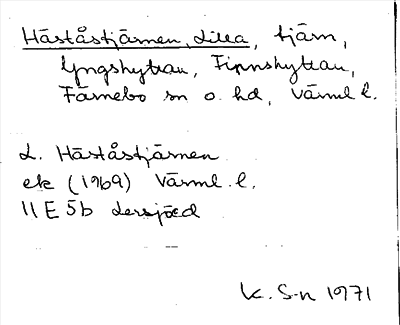 Häståstjärnen, Lilla, tjärn,
Yngshyttan, Finnshyttan,
Färnebo sn o. hd, Värml. l.
L. Häståstjärnen
ek (1969) Värml. l.
11 E 5b Lersjöed
K. S-n 1971